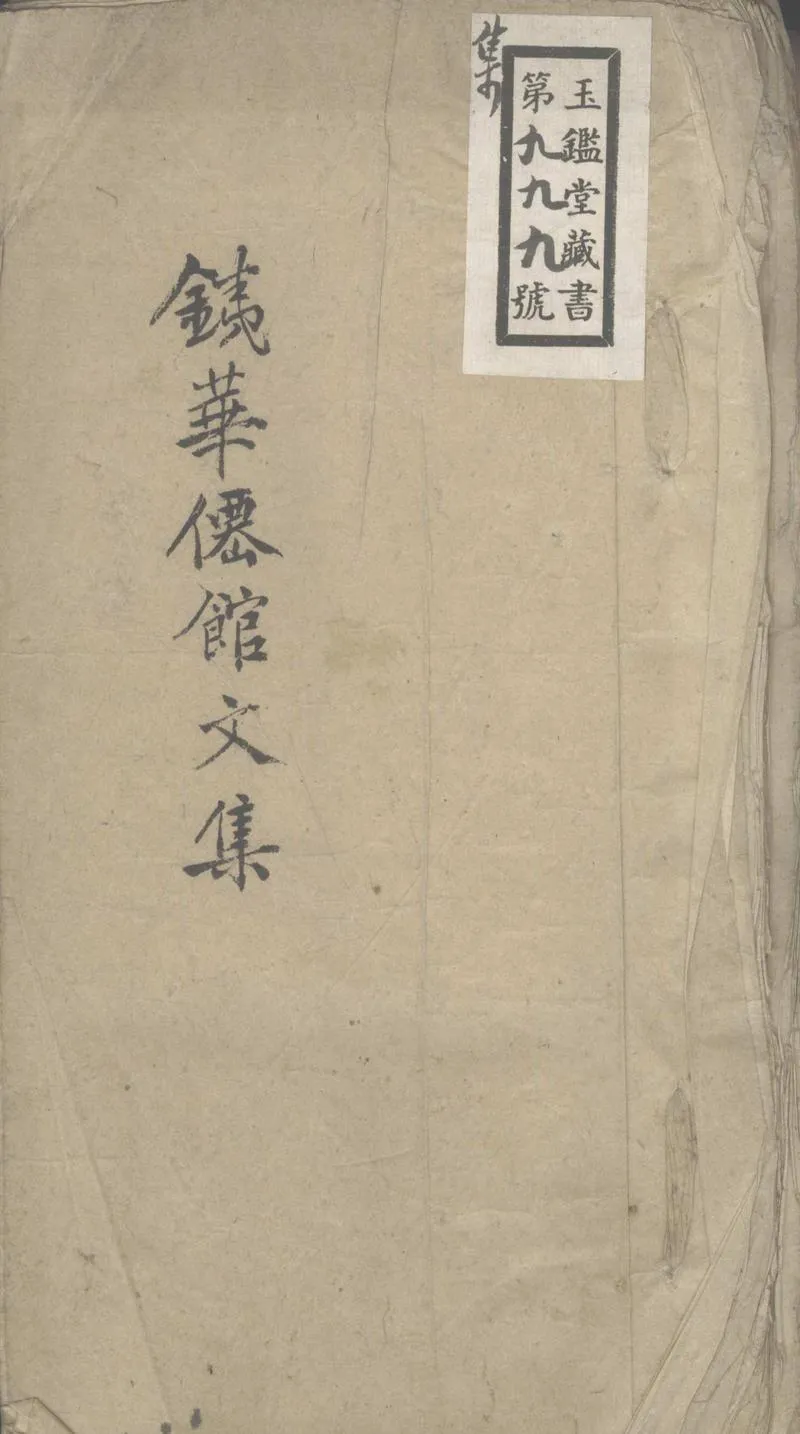 玉鑑堂藏書
第九九九號
集
銕華僊館文集